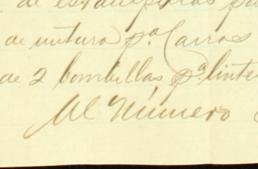 de
de untura p.a Carros
de 2 bombillas p.a linter
Al Número